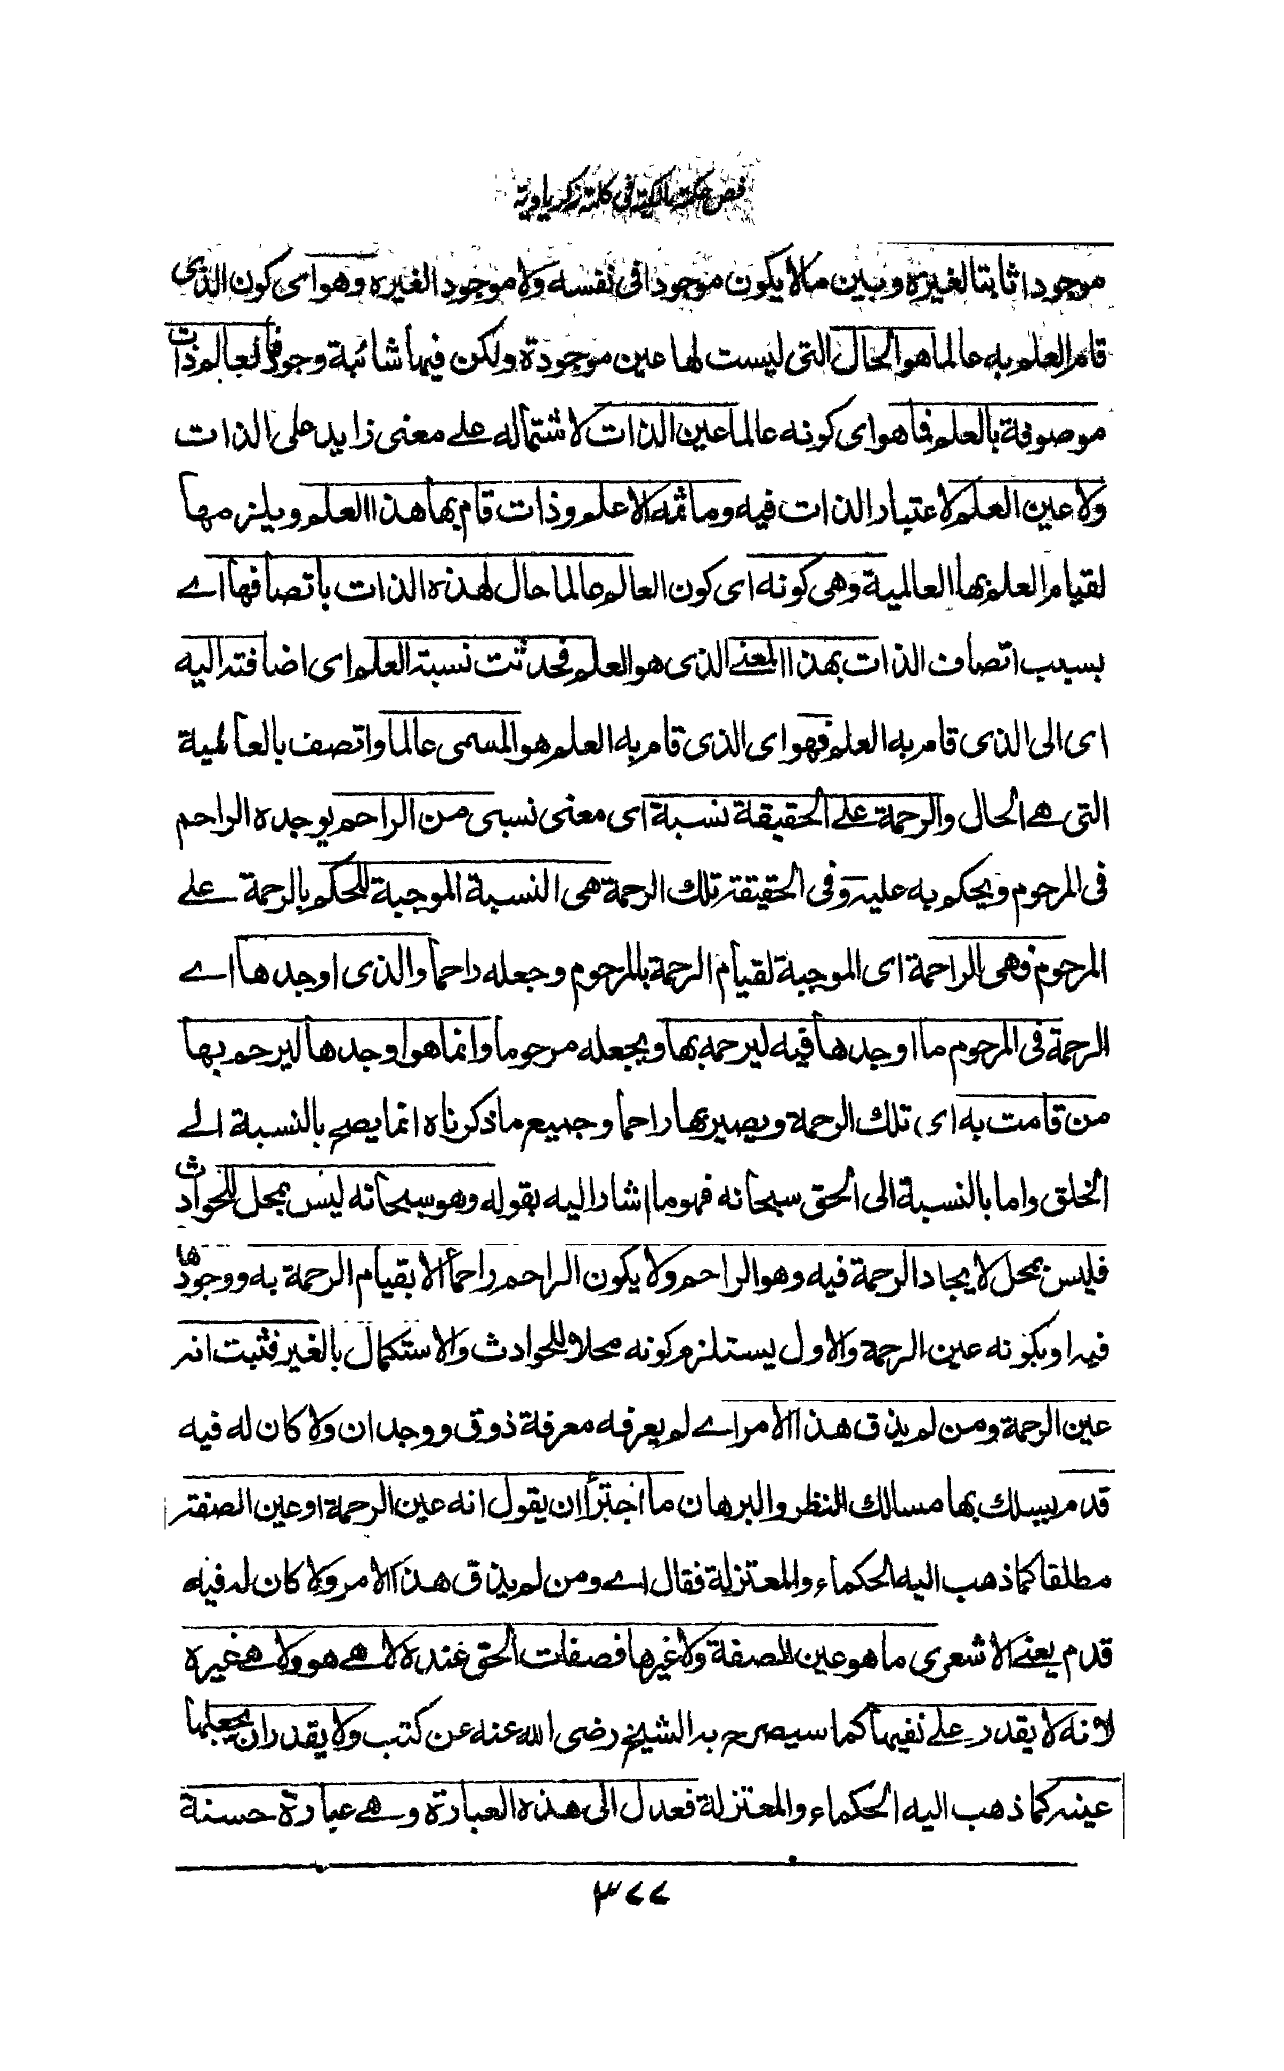 فص حكمة مالكية في كلمة زكرياوية
موجودا ثابتا لغيره وبين ما لا يكون موجودا في نفسه ولا موجودا لغيره وهو اى كون الذى
قام العلم به عالما هو الحال التى ليست لها عين موجودة ولكن فيها شائبة وجود فالعالم ذات
موصوفة بالعلم فما هو اى كونه عالما عين الذات لاشتماله على معنى زايد على الذات
ولا عين العلم لاعتبار الذات فيه وما ثمه الا علم وذات قام بها هذا العلم ويلزمها
لقيام العلم بها العالمية وهى كونه اى كون العالم عالما حال لهذه الذات باتصافها اے
بسبب اتصاف الذات بهذا المعنے الذى هو العلم فحدثت نسبة العلم اى اضافته اليه
اى الى الذى قام به العلم فهو اى الذى قام به العلم هو المسمى عالما واتصف بالعالمية
التى هے الحال والرحمة علے الحقيقة نسبة اى معنى نسبى من الراحم يوجده الراحم
فى المرحوم ويحكم به عليه وفى الحقيقة تلك الرحمة هى النسبة الموجبة للحكم بالرحمة علے
المرحوم فهى الراحمة اى الموجبة لقيام الرحمة بالمرحوم وجعله راحما والذى اوجدها اے
الرحمة فى المرحوم ما اوجدها فيه ليرحمه بها ويجعله مرحوما وانما هو اوجدها ليرحم بها
من قامت به اى تلك الرحمة ويصير بها راحما وجميع ما ذكرناه انما يصح بالنسبة الے
الخلق واما بالنسبة الى الحق سبحانه فهو ما اشار اليه بقوله وهو سبحانه ليس بمحل للحوادث
فليس بمحل لايجاد الرحمة فيه وهو الراحم ولا يكون الراحم راحماً الا بقيام الرحمة به ووجودها
فيه او بكونه عين الرحمة والاول يستلزم كونه محلا للحوادث والاستكمال بالغير فثبت انه
عين الرحمة ومن لم يذق هذا الامر اے لم يعرفه معرفة ذوق ووجدان ولا كان له فيه
قدم يسلك بها مسالك النظر والبرهان ما اجترأ ان يقول انه عين الرحمة او عين الصفة
مطلقا كما ذهب اليه الحكماء والمعتزلة فقال اے ومن لم يذق هذا الامر ولا كان له فيه
قدم يعنے الاشعرى ما هو عين الصفة ولا غيرها فصفات الحق عنده لا هے هو ولا هے غيره
لانه لا يقدر علے نفيها كما سيصرح به الشيخ رضى الله عنه عن كتب ولا يقدر ان يجعلها
عينه كما ذهب اليه الحكماء والمعتزلة فعدل الى هذه العبارة وهے عبارة حسنة
٣٧٧